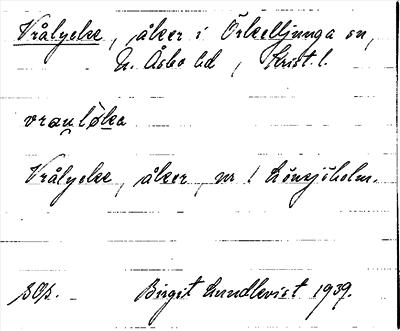 Vrålyeke, åker i Örkelljunga sn,
N. Åsbo hd, Krist. l.
vraulöka
Vrålyeke, åker, nr 1 Lönsjöholm.
Birgit Lundkvist 1939.